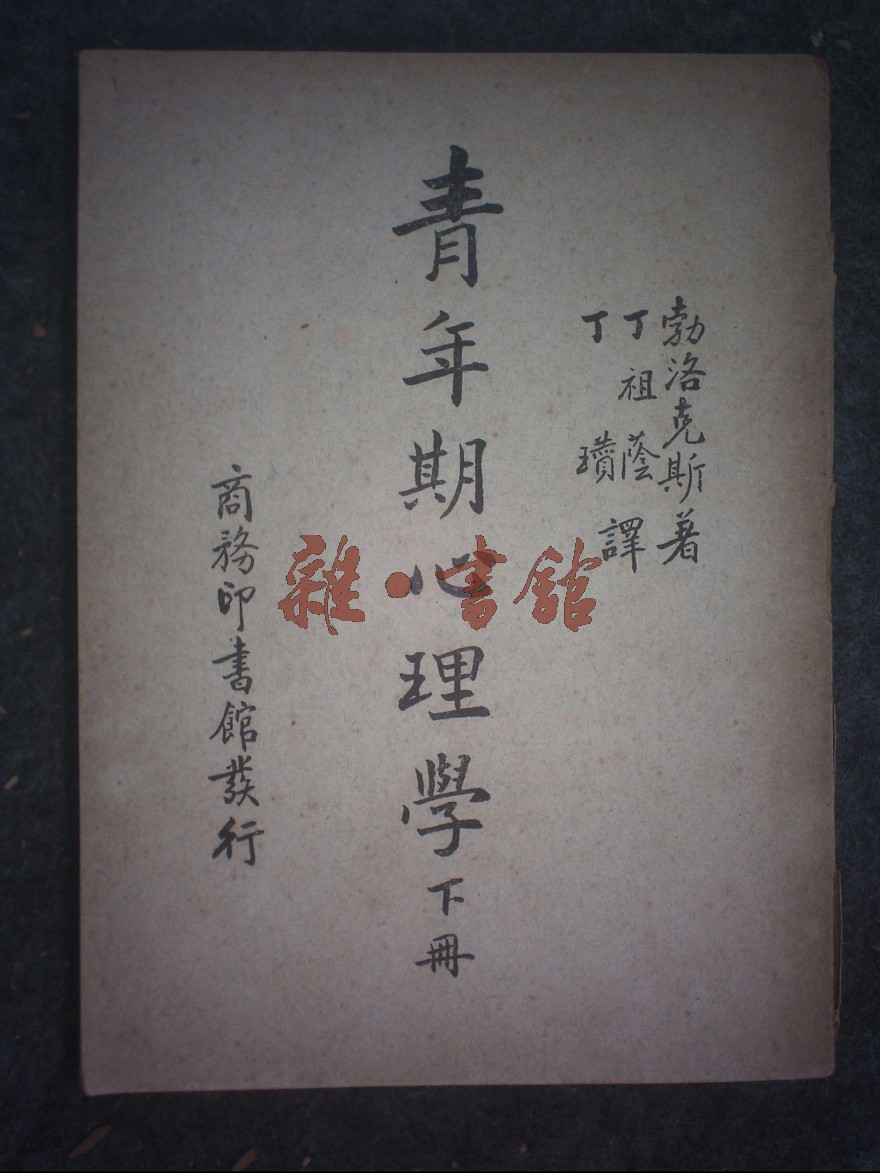 勃洛克斯著
丁祖蔭
丁瓚
譯
青年期心理學下冊
商務印書館發行
雜·書館